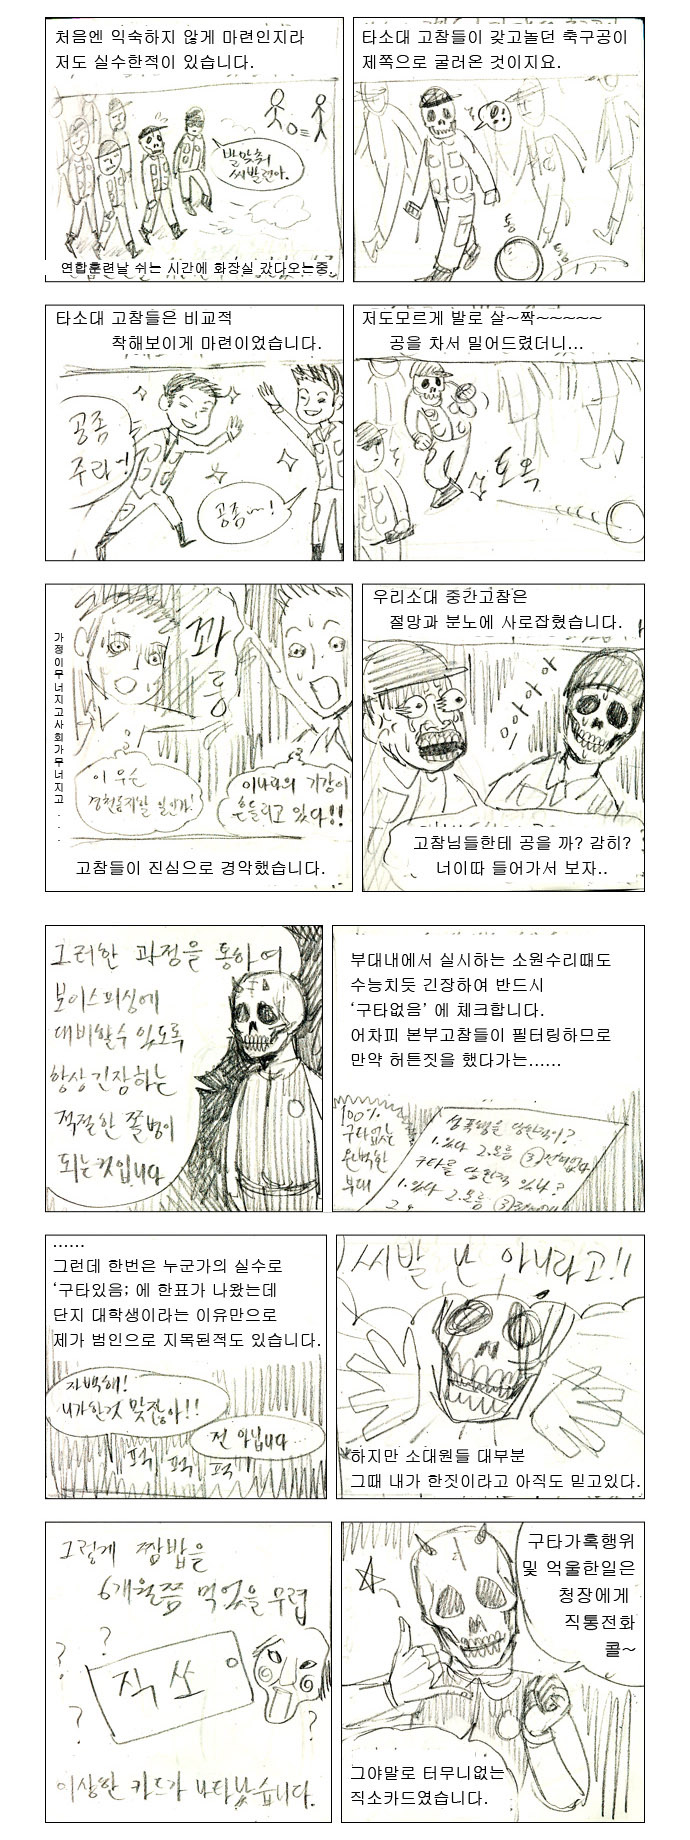 처음엔 익숙하지 않게 마련인지라
저도 실수한적이 있습니다.
발맞춰
씨발련아.
연합훈련날 쉬는 시간에 화장실 갔다오는중.
타소대 고참들이 갖고놀던 축구공이
제쪽으로 굴러온 것이지요.
통
통
타소대 고참들은 비교적
착해보이게 마련이었습니다.
공좀
주라~!
공좀~!
저도모르게 발로 살~짝~~~~~
공을 차서 밀어드렸더니...
토옥
가정이무너지고사회가무너지고...
콰
릉
이 무슨
경천동지할 일인가!
이나라의 기강이
흔들리고 있다!!
고참들이 진심으로 경악했습니다.
우리소대 중간고참은
절망과 분노에 사로잡혔습니다.
으아아아
고참님들한테 공을 까? 감히?
너이따 들어가서 보자..
그러한 과정을 통하여
보이스피싱에
대비할수 있도록
항상긴장하는
적절한 쫄병이
되는것입니다
부대내에서 실시하는 소원수리때도
수능치듯 긴장하여 반드시
‘구타없음’ 에 체크합니다.
어차피 본부고참들이 필터링하므로
만약 허튼짓을 했다가는......
100%
구타없는
완벽한
부대
성폭행을 당한적이?
1.있다 2.모름 ③전혀없다
구타를 당한적 있나?
1.있다 2.모름 ③
......
그런데 한번은 누군가의 실수로
‘구타있음; 에 한표가 나왔는데
단지 대학생이라는 이유만으로
제가 범인으로 지목된적도 있습니다.
자백해!
니가한것 맞잖아!!
전 아닙니다
퍽 퍽 퍽
씨발 난 아니라고!!
하지만 소대원들 대부분
그때 내가 한짓이라고 아직도 믿고있다.
그렇게 짬밥을
6개월쯤 먹었을 무렵
?
?
?
?
직쏘
이상한 카드가 나타났습니다.
구타가혹행위
및 억울한일은
청장에게
직통전화
콜~
그야말로 터무니없는
직소카드였습니다.